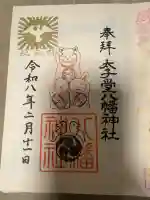 奉拝 太子堂八幡神社
令和八年二月十一日